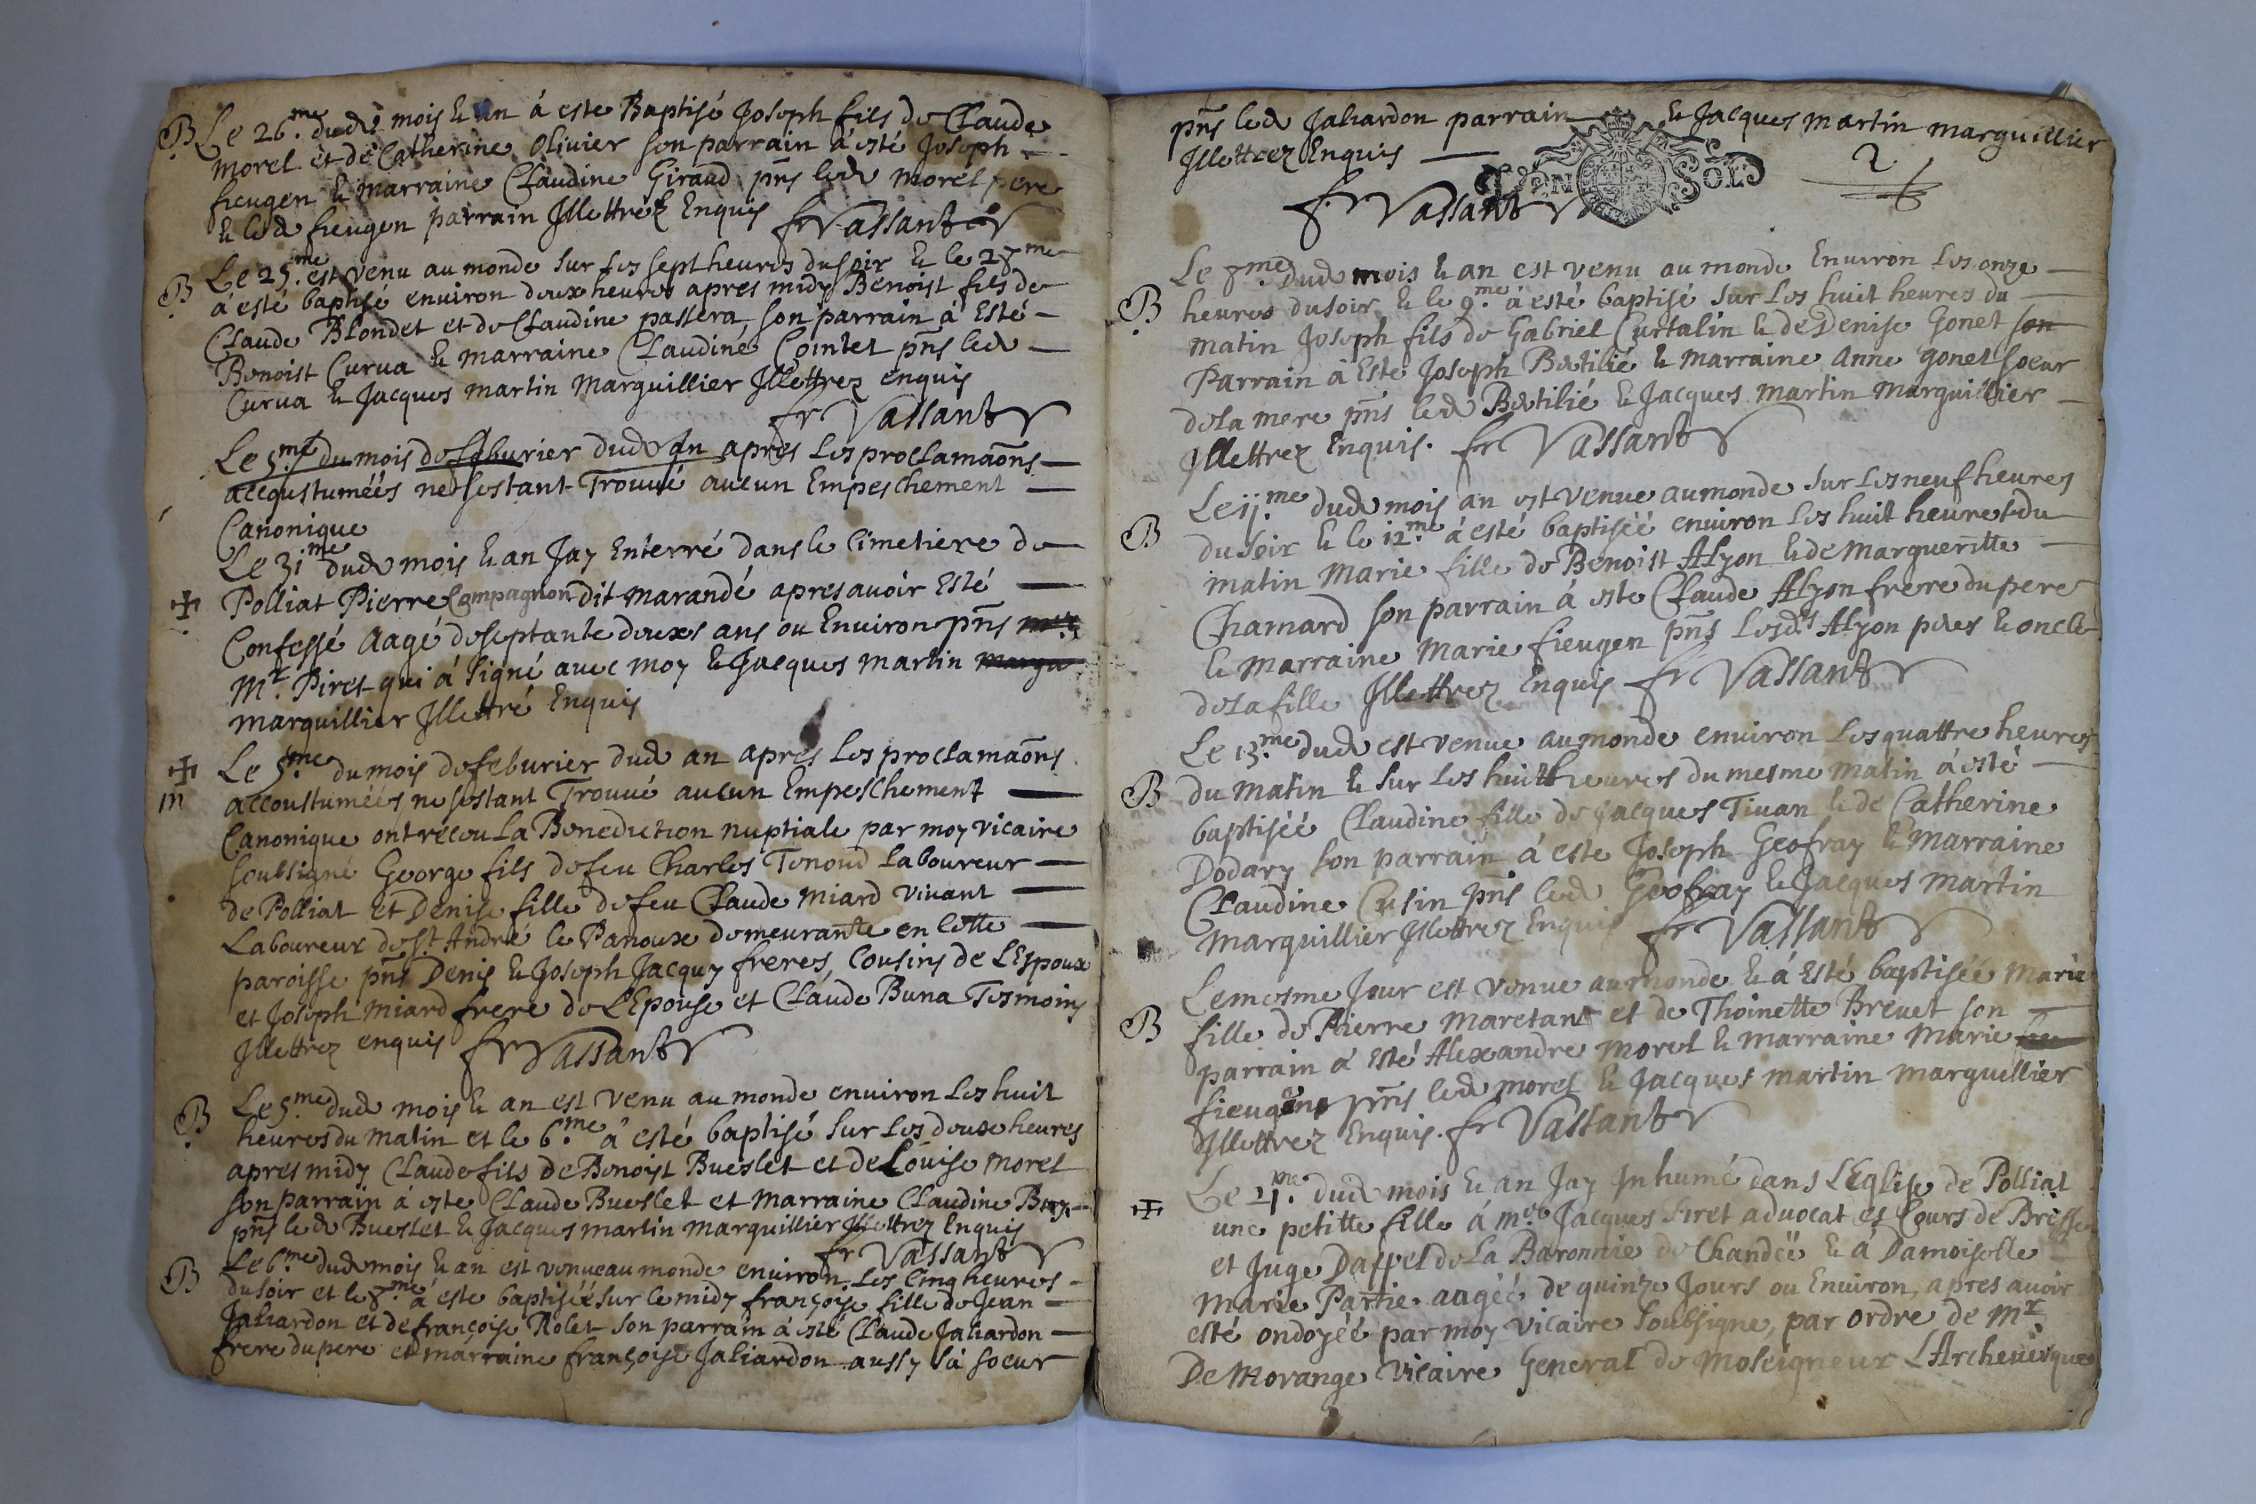 B Le 26.me dud. mois & an á esté Baptisé Joseph fils de Claude
morel et de Catherine Olivier son parrain á esté Joseph
fieugen & marraine Claudine Giraud pñs led morel pere
& led fieugen parrain Jllettrez Enquis fr Vassant
B Le 25.me est venu au monde sur les sept heures du soir & le 27me
á esté baptisé environ deux heures apres midy Benoist fils de
Claude Blondet et de Claudine passera, son parrain á Esté
Benoist Curva & marraine Claudine Cointet pñs led
Curva & Jacques martin Marguillier Jllettrez enquis
fr Vassant
Le 5.me du mois de feburier dud an apres les proclamaõns
accoustumées ne sestant Trouué aucun Empeschement
Canonique
Le 31me dud mois & an Jay Enterré dans le Cimetiere de
Polliat Pierre Compagnon dit marandé apres avoir Esté
Confessé aagé de septante deux ans ou Environ pñs
Mr. Piret qui á signé avec moy & Jacques martin
marguillier Jllettré Enquis
m Le 5me du mois de feburier dud an apres les proclamaõns
accoustumées ne sestant Trouué aucun Empeschement
Canonique ont récou La Benediction nuptiale par moy vicaire
soubsigné George fils de feu Charles Tenoud Laboureur
de Polliat et Denise fille de feu Claude Miard vivant
Laboureur de St André le Panoux demeurante en Cette
paroisse pñs Denis & Joseph Jacquy freres, Cousins de L'Espoux
et Joseph Miard frere de L'Epouse et Claude Buna Tesmoins
Jllettrez enquis fr Vassant
B Le 5.me dud mois & an est venu au monde environ les huit
heures du Matin et le 6.me á esté baptisé sur les deux heures
apres midy Claude fils de Benoist Bueslet et de Louise Morel
son parrain á este Claude Bueslet et marraine Claudine
pñs led Bueslet & Jacques martin marguillier Jllettrez Enquis
fr Vassant
B Le 6.me dud mois & an est venue au monde environ les Cinq heures
du soir et le 7.me á este baptisée sur le midy françoise fille de Jean
Jaliardon et de françoise Rolet son parrain á esté Claude Jaliardon
frere du pere et marraine françoise Jaliardon aussy sa soeur
pñs led Jaliardon parrain & Jacques martin marguillier
Jllettrez Enquis
2
DEN SOL
fr Vassant
Le 7.me dud mois & an est venu au monde Environ les onze
B heures du soir & le 9.me á esté baptisé sur les huit heures du
matin Joseph fils de Gabriel Curtalin & de Denise Gonet son
Parrain á Esté Joseph Betilié & marraine Anne gonet soeur
de la mere pñs led Betilié & Jacques Martin Marguillier
Jllettrez Enquis. fr Vassant
Le 11.me dud mois an est venue au monde sur les neuf heures
B du soir & le 12.me á esté baptisée environ les huit heures du
matin Marie fille de Benoist Alyon & de Margueritte
Chamard son parrain á este Claude Alyon frere du pere
& marraine Marie fieugen pñs lesd.s Alyon pere & oncle
de la fille Jllettrez Enquis fr Vassant
Le 13.me dud est venue au monde environ les quattre heures
B du matin & sur les huit heures du mesme matin á esté
baptisée Claudine fille de Jacques Tiuan & de Catherine
Dodary son parrain á este Joseph Geofray & marraine
Claudine Cusin pñs led Geofray & Jacques Martin
marguillier Jllettrez Enquis fr Vassant
Le mesme Jour est venue au monde & á Esté baptisée Marie
B fille de Pierre Maretant et de Thoinette Brevet son
parrain á Esté Alexandre Morel & marraine Marie
fieugene pñs led morel & Jacques Martin marguillier
Jllettrez Enquis. fr Vassant
Le dud mois & an Jay Inhumé dans L'Eglise de Polliat
une petitte fille á Jacques Piret advocat es Cours de Bresse
et Juge Dappel de La Baronnie de Chandeë & á Damoiselle
Marie Partie aagée de quinze Jours ou Environ, apres avoir
esté ondoyée par moy vicaire soubsigne, par ordre de Mr.
De Morange vicaire General de Moseigneur L'Archeuesque